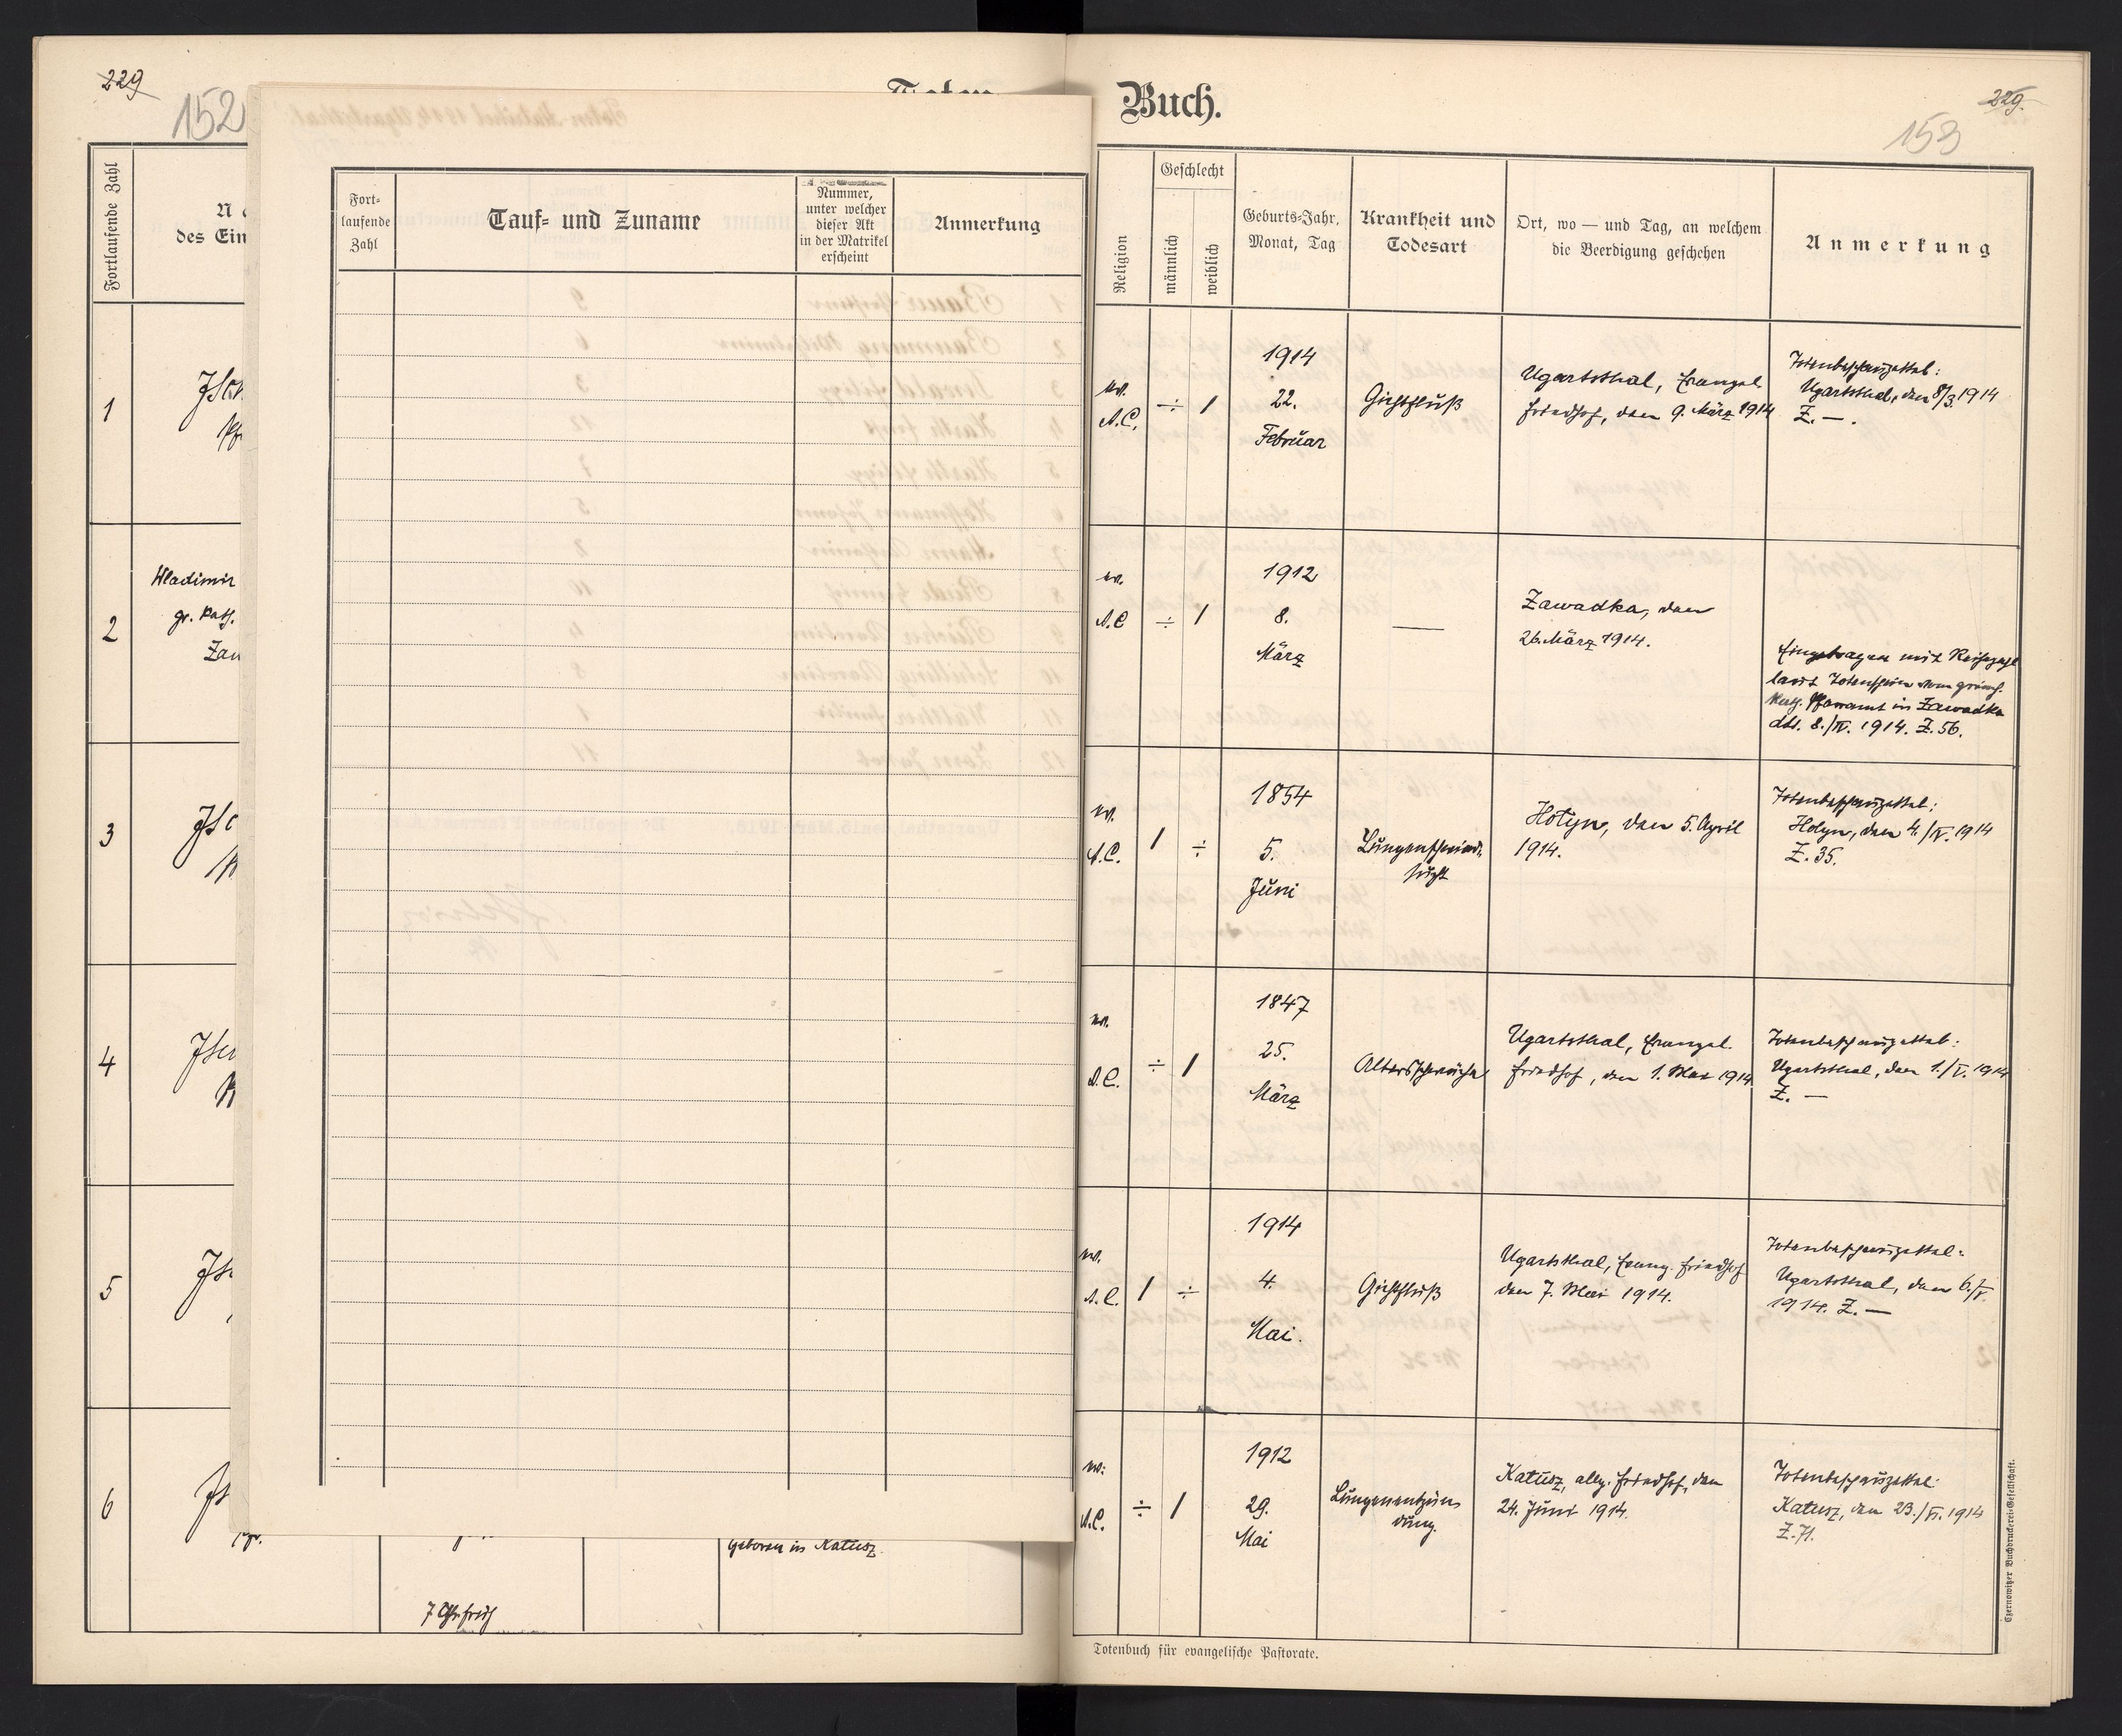 229
152
Fortlaufende Zahl
des Ein
1
2
Wladimir
gr. kath.
3
4
5
6
geboren in Katusz.
7 Uhr früh
Fort-
laufende
Zahl
Tauf- und Zuname
Nummer,
unter welcher
dieser Akt
in der Matrikel
erscheint
Anmerkung
Buch.
229.
153
Religion
Geschlecht
männlich
weiblich
Geburts-Jahr,
Monat, Tag
Krankheit und
Todesart
Ort, wo — und Tag, an welchem
die Beerdigung geschehen
Anmerkung
ev.
A.C.
÷
1
1914
22.
Februar
Gichtfluß
Ugartsthal, Evangel.
Friedhof, den 9. März 1914
Totenbeschauzettel:
Ugartsthal, den 8/3. 1914
Z. — .
ev.
A.C
÷
1
1912
8.
März
—
Zawadka, den
26. März 1914.
Eingetragen mit Reihezahl
laut Totenschein vom griech.
kath. Pfarramt in Zawadka
dto. 8./IV. 1914. Z. 56.
ev.
A.C.
1
÷
1854
5.
Juni
Lungenschwind-
sucht
Hołyn, den 5. April
1914.
Totenbeschauzettel:
Hołyn, den 4./IV. 1914
Z. 35.
ev.
A.C.
÷
1
1847
25.
März
Altersschwäche
Ugartsthal, Evangel.
Friedhof, den 1. Mai 1914
Totenbeschauzettel:
Ugartsthal, den 1./V. 1914
Z. —
ev.
A.C.
1
÷
1914
4.
Mai.
Gichtfluß
Ugartsthal, Evang. Friedhof
den 7. Mai 1914.
Totenbeschauzettel:
Ugartsthal, den 6./V.
1914. Z. —
ev.
A.C.
÷
1
1912
29.
Mai
Lungenentzün
dung.
Katusz, allg. Friedhof, den
24. Juni 1914.
Totenbeschauzettel:
Katusz, den 23./VI. 1914
Z. 71.
Totenbuch für evangelische Pastorate.
Czernowitzer Buchdruckerei-Gesellschaft.